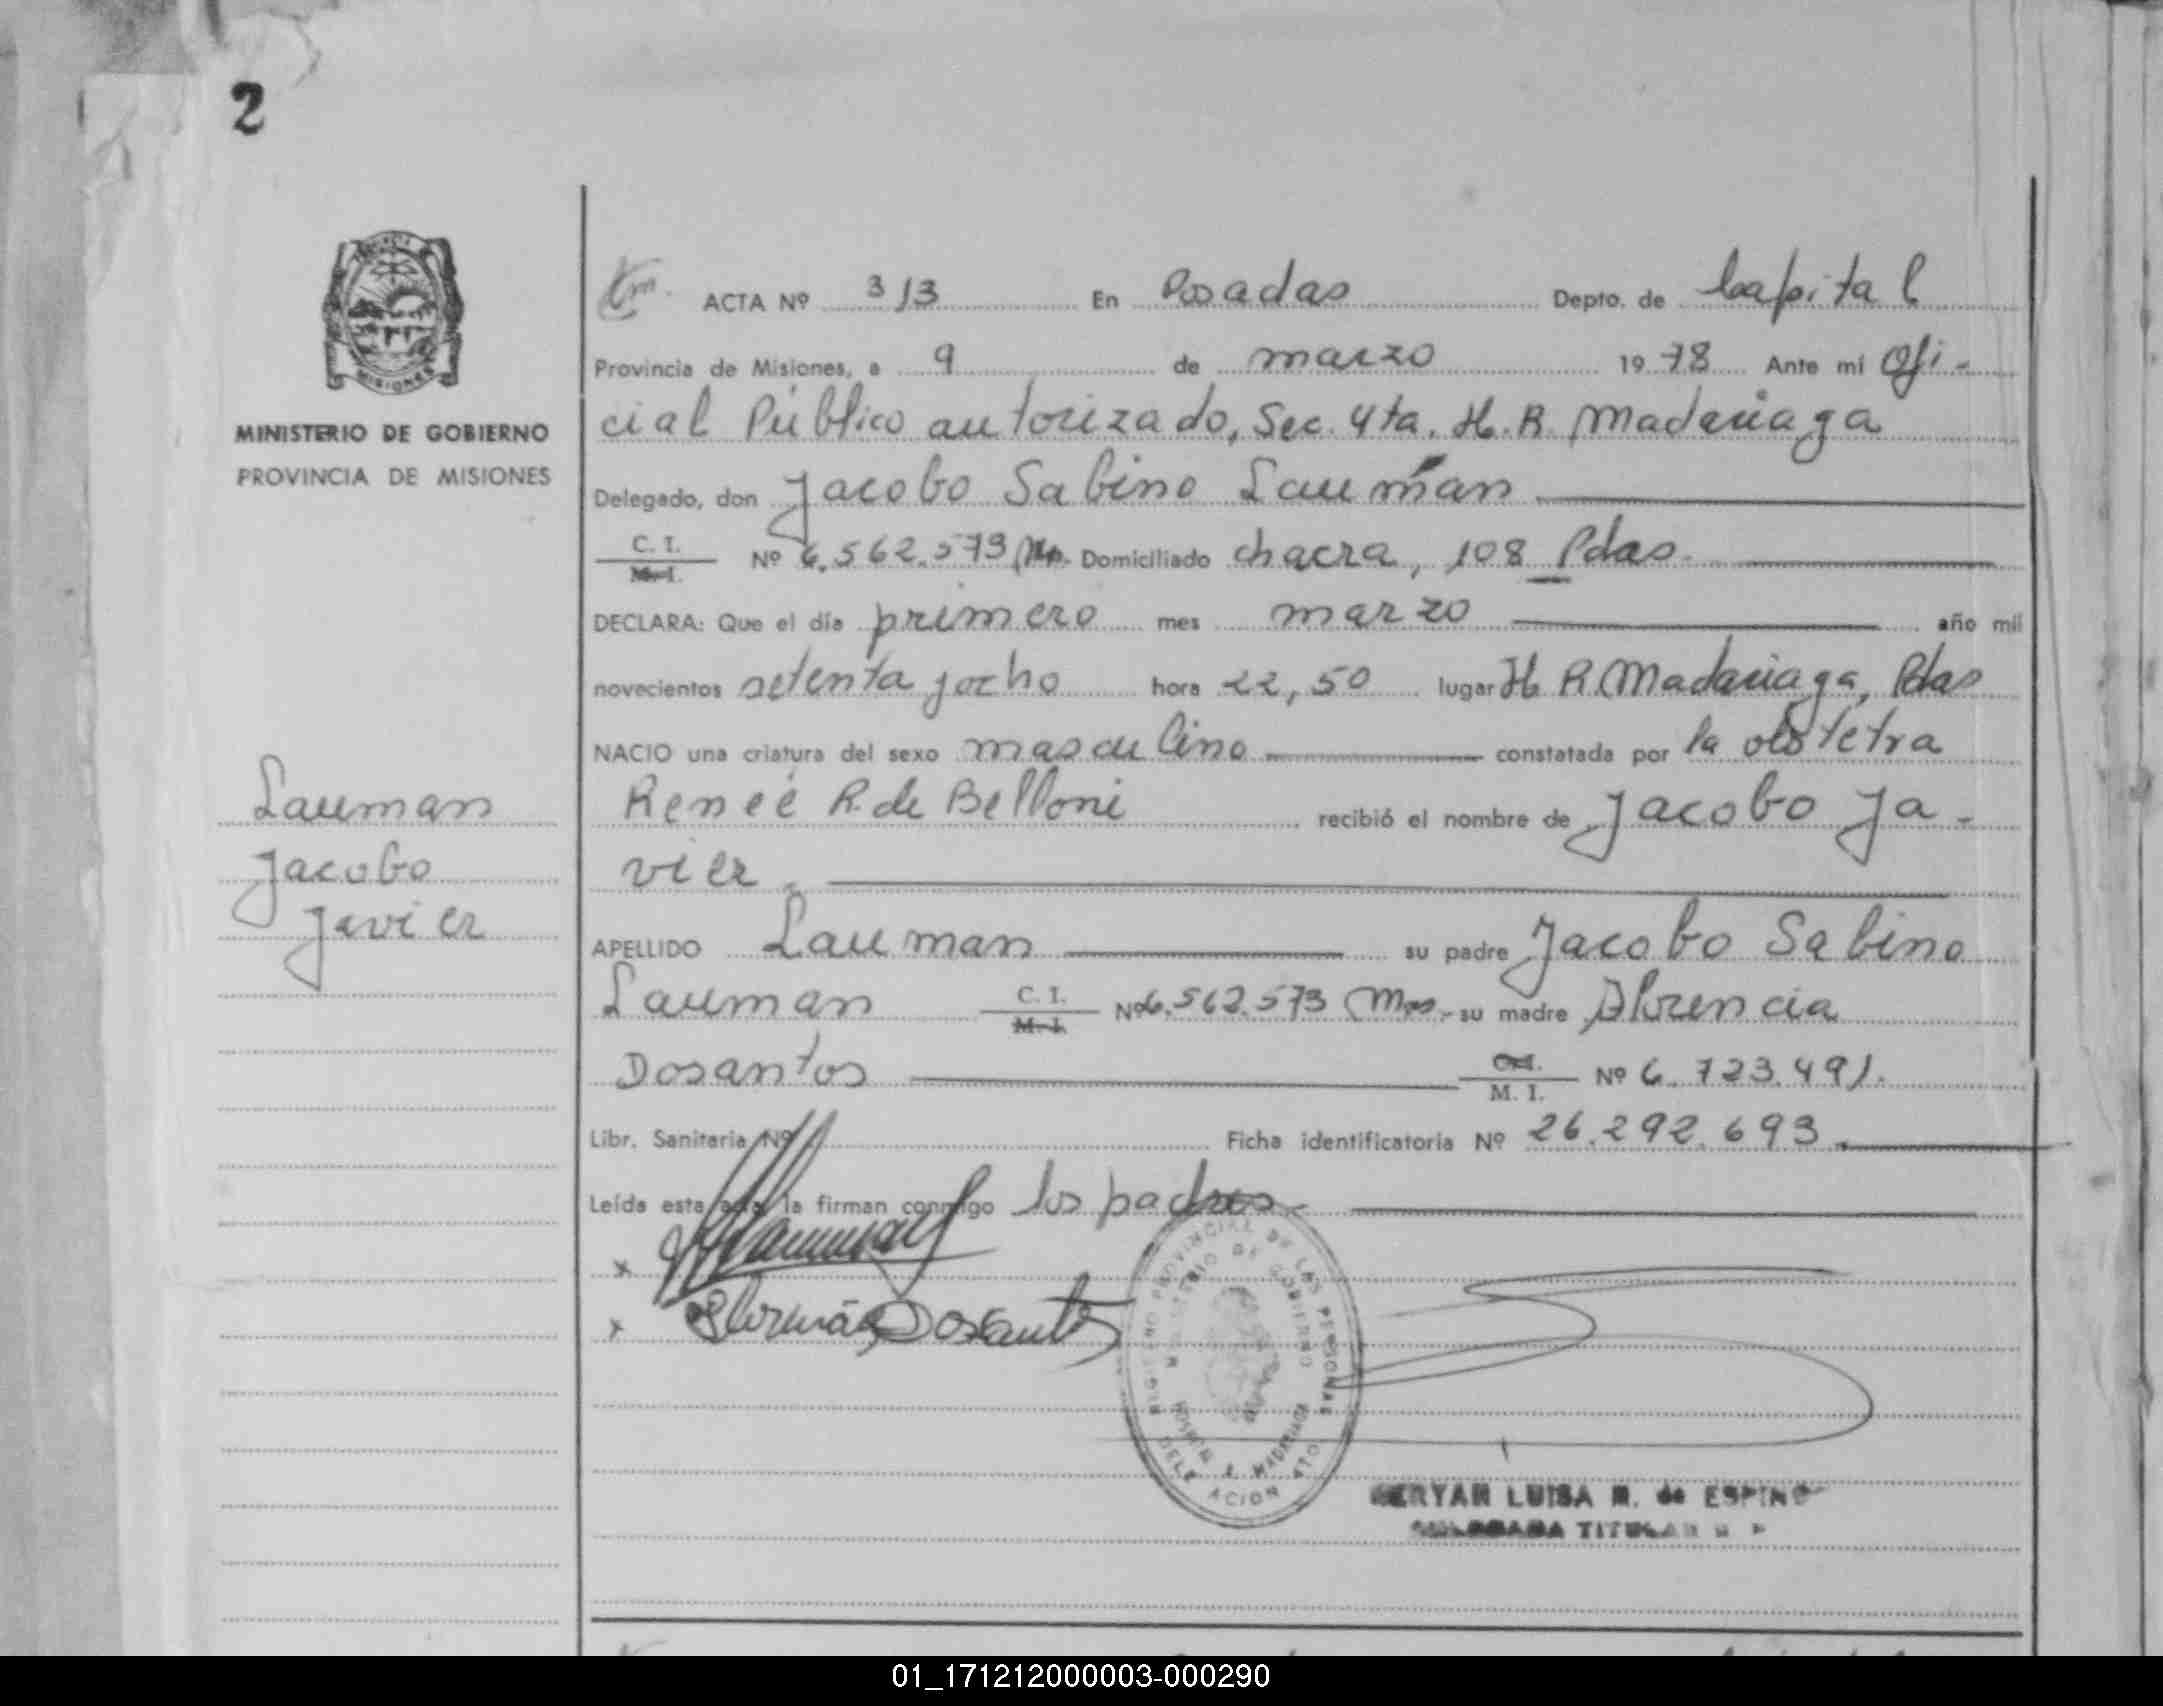 2
MINISTERIO DE GOBIERNO
PROVINCIA DE MISIONES
ACTA Nº 313 En Posadas Depto. de Capital
Provincia de Misiones, a 9 de marzo 1978 Ante mí Ofi-
cial Público autorizado, Sec. 4ta. H. R. Madariaga
Delegado, don Jacobo Sabino Lauman
C. I. M. I. Nº 6.562.573 Mns. Domiciliado chacra, 108 Pdas.
DECLARA: Que el día primero mes marzo año mil
novecientos setenta y ocho hora 22,50 lugar H R. Madariaga, Pdas
NACIO una criatura del sexo masculino constatada por la obstetra
Reneé R. de Belloni recibió el nombre de Jacobo Ja-
vier
Lauman
Jacobo
Javier
APELLIDO Lauman su padre Jacobo Sabino
Lauman C. I. M. I. Nº 6.562.573 Mns. su madre Florencia
Dosantos C. I. M. I. Nº 6.723.491.
Libr. Sanitaria Nº Ficha identificatoria Nº 26.292.693.
Leída esta acta la firman conmigo los padres.
x Lauman
x Florencia Dosantos
REGISTRO PROVINCIAL DE LAS PERSONAS
MINISTERIO DE GOBIERNO
MADARIAGA
DELEGACION 4TO
LUISA M. de ESPINO
TITULAR
01_171212000003-000290